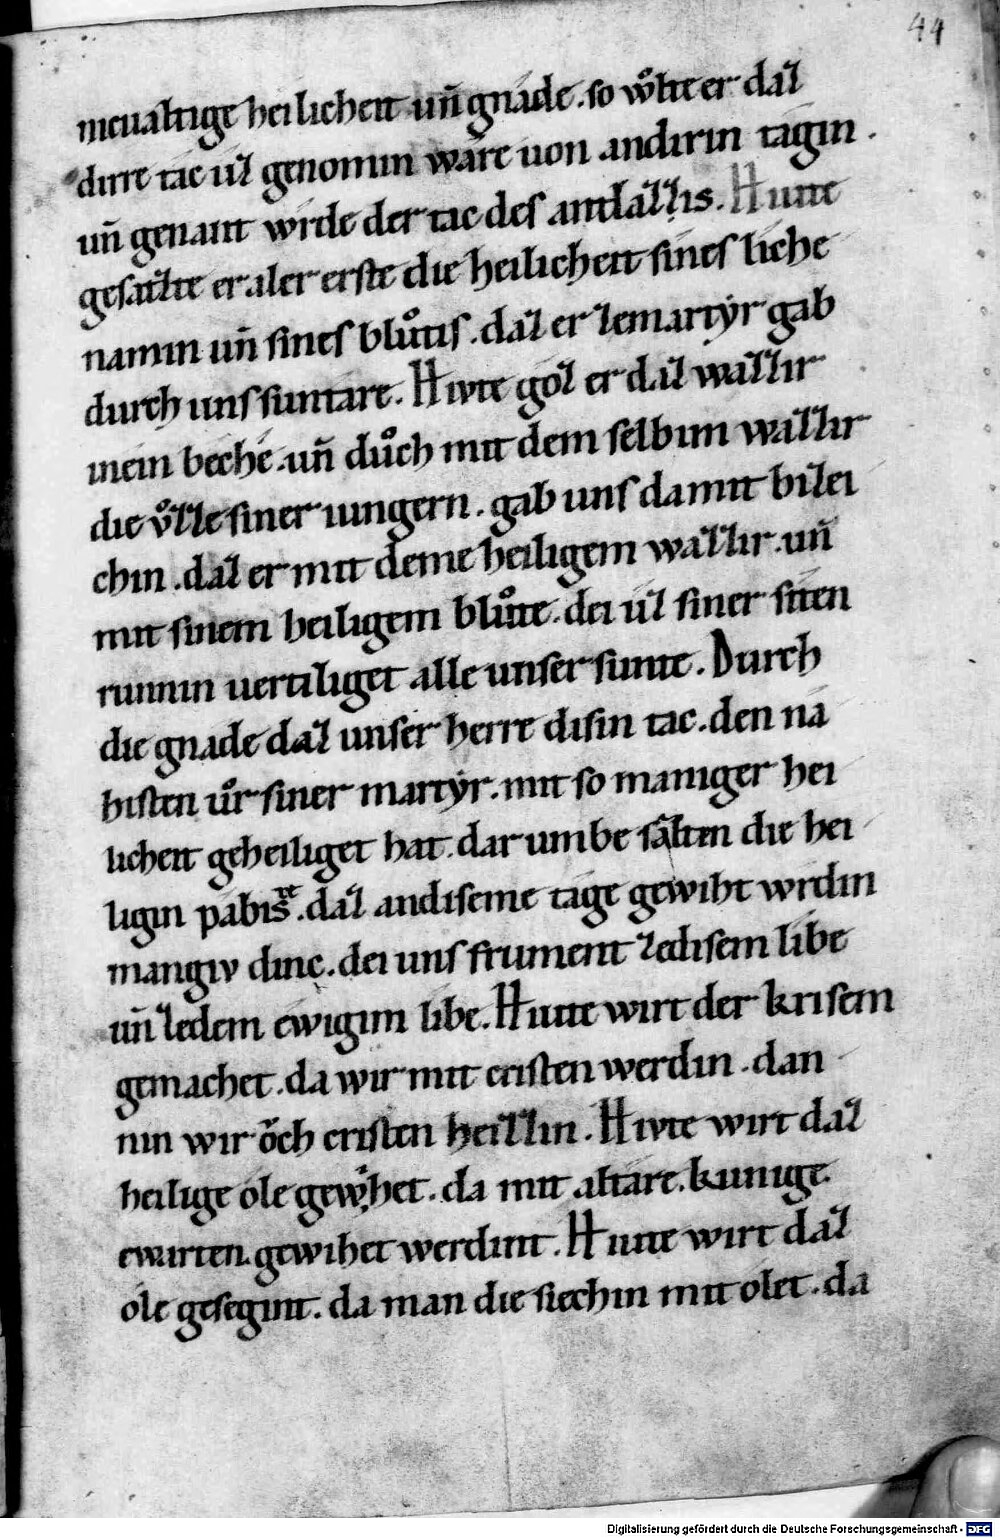 44
nicualtige heilicheit un̄ gnade. so wͦlte er daz
dirre tac uz genomin ware uon andirin tagin.
un̄ genant wrde der tac des antlazzis. Hiute
gesazte er aler erste die heilicheit sines liche
namin un̄ sines blůtis. daz er zemartyr gab
durch uns suntare. Hivte goz er daz wazzir
inein beche. un̄ důch mit dem selbim wazzir
die vͦzze siner iungern. gab uns damit bizei
chin. daz er mit deme heiligem wazzir. un̄
mit sinem heiligem blůte. dei uz siner siten
runnin uertiliget alle unser sunte. Durch
die gnade daz unser herre disin tac. den na
histen uͦr siner martyr. mit so maniger hei
licheit geheiliget hat. dar umbe sazten die hei
ligin pabis. daz andiseme tage gewiht wrdin
mangiv dinc. dei uns frument zedisem libe
un̄ zedem ewigim libe. Hiute wirt der krisem
gemachet. da wir mit cristen werdin. dan
nin wir oͮch cristen heizzin. Hivte wirt daz
heilige ole gewihet. da mit altare. kunige.
ewarten. gewihet werdint. Hiute wirt daz
ole gesegint. da man die siechin mit olet. da
Digitalisierung gefördert durch die Deutsche Forschungsgemeinschaft - DFG